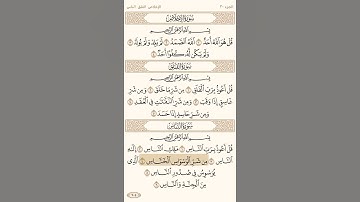 الجزء ٣٠
الإخلاص، الفلق، الناس
سُورَةُ الإِخْلَاصِ
بِسْمِ اللَّهِ الرَّحْمَٰنِ الرَّحِيمِ
قُلْ هُوَ اللَّهُ أَحَدٌ ۝١ اللَّهُ الصَّمَدُ ۝٢ لَمْ يَلِدْ وَلَمْ يُولَدْ ۝٣
وَلَمْ يَكُن لَّهُ كُفُوًا أَحَدٌ ۝٤
سُورَةُ الْفَلَقِ
بِسْمِ اللَّهِ الرَّحْمَٰنِ الرَّحِيمِ
قُلْ أَعُوذُ بِرَبِّ الْفَلَقِ ۝١ مِن شَرِّ مَا خَلَقَ ۝٢ وَمِن شَرِّ
غَاسِقٍ إِذَا وَقَبَ ۝٣ وَمِن شَرِّ النَّفَّاثَاتِ فِي الْعُقَدِ ۝٤
وَمِن شَرِّ حَاسِدٍ إِذَا حَسَدَ ۝٥
سُورَةُ النَّاسِ
بِسْمِ اللَّهِ الرَّحْمَٰنِ الرَّحِيمِ
قُلْ أَعُوذُ بِرَبِّ النَّاسِ ۝١ مَلِكِ النَّاسِ ۝٢ إِلَٰهِ
النَّاسِ ۝٣ مِن شَرِّ الْوَسْوَاسِ الْخَنَّاسِ ۝٤ الَّذِي
يُوَسْوِسُ فِي صُدُورِ النَّاسِ ۝٥
مِنَ الْجِنَّةِ وَالنَّاسِ ۝٦
٦٠٤